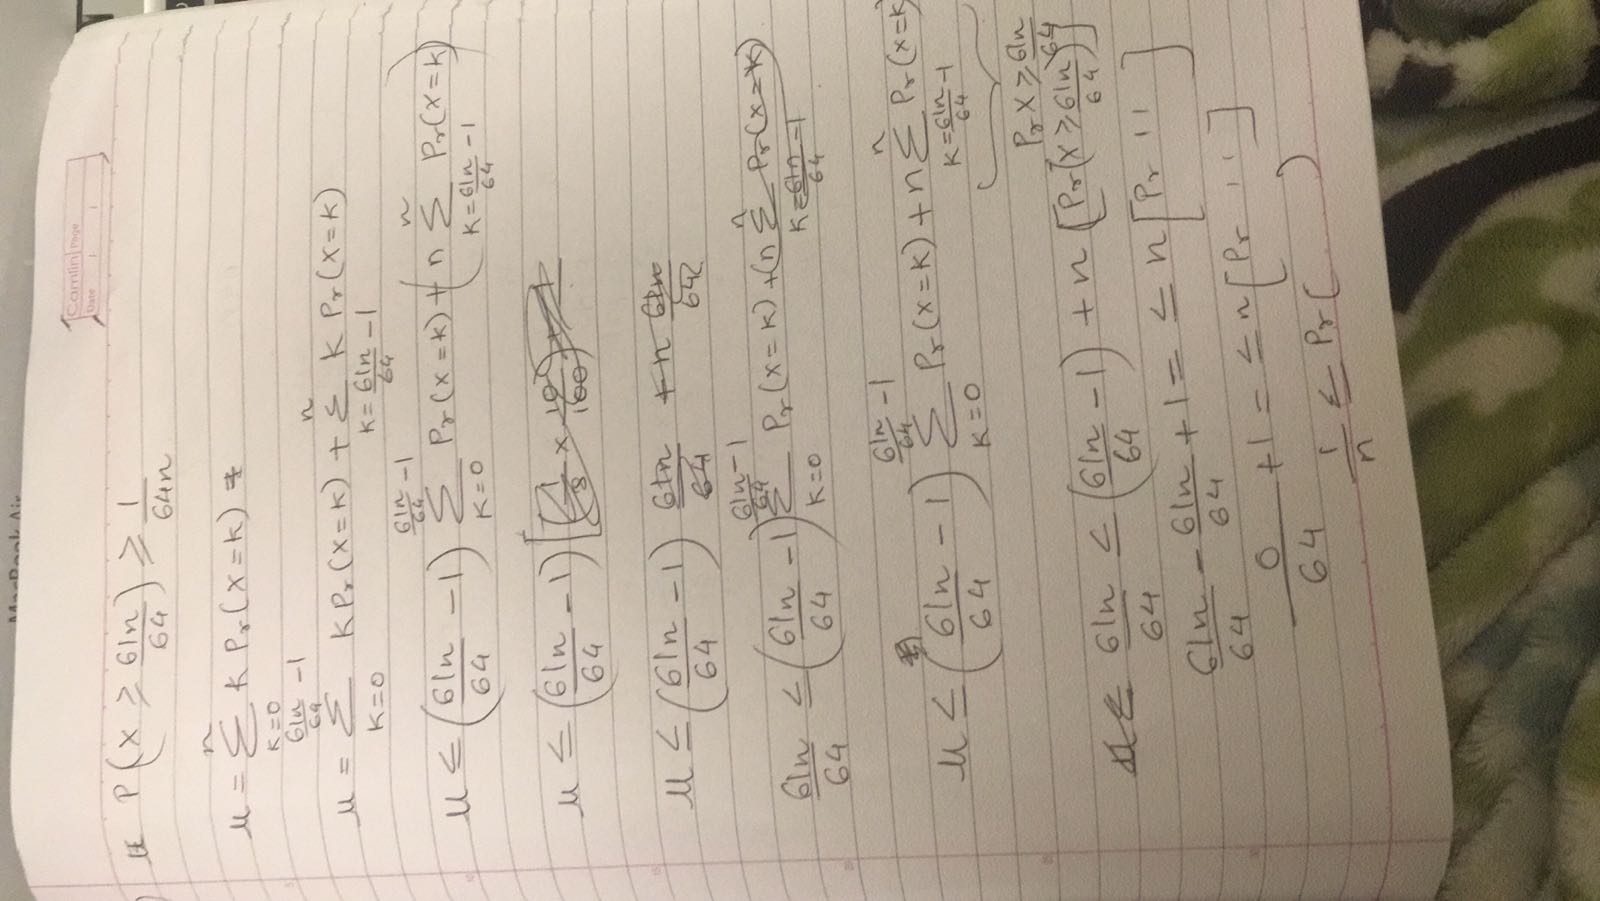 MacBook Air
Camlin Page
Date
P(X ≥ 61n/64) ≥ 1/64n
μ = Σ_{K=0}^{n} K Pr(X=K)
μ = Σ_{K=0}^{61n/64 - 1} K Pr(X=K) + Σ_{K=61n/64 - 1}^{n} K Pr(X=K)
μ ≤ (61n/64 - 1) Σ_{K=0}^{61n/64 - 1} Pr(X=K) + (n Σ_{K=61n/64 - 1}^{n} Pr(X=K))
μ ≤ (61n/64 - 1)
μ ≤ (61n/64 - 1) 61n/64 + n 61n/64
61n/64 ≤ (61n/64 - 1) Σ_{K=0}^{61n/64 - 1} Pr(X=K) + (n Σ_{K=61n/64 - 1}^{n} Pr(X=K))
μ ≤ (61n/64 - 1) Σ_{K=0}^{61n/64 - 1} Pr(X=K) + n Σ_{K=61n/64 - 1}^{n} Pr(X=K)
Pr X ≥ 61n/64
61n/64 ≤ (61n/64 - 1) + n [Pr(X ≥ 61n/64)]
61n/64 - 61n/64 + 1 = ≤ n [Pr 11]
0/64 + 1 = ≤ n [Pr 11]
1/n ≤ Pr( )